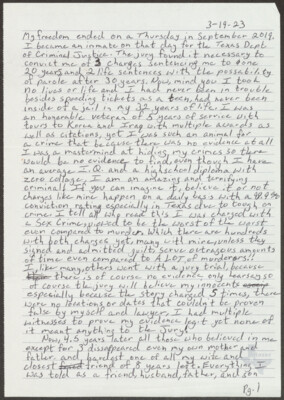 3-19-23
My freedom ended on a Thursday in September 2019.
I became an inmate on that day for the Texas Dept.
of Criminal Justice. The jury found it necessary to
convict me of 3 charges sentencing me to one
20 years and 2 life sentences with the possibility
of parole after 30 years. Now mind you I took
no lives or life and I had never been in trouble
besides speeding tickets as a teen, had never been
inside of a jail in my 32 years of life. I was
an honorable veteran of 5 years of service with
tours to Korea and Iraq with multiple awards as
well as citations, yet I was such an animal for
a crime that because there was no evidence at all
I was a mastermind at hiding my crimes so there
would be no evidence to find, even though I have
an average I.Q. and a highschool diploma with
zero college. I am an amazing and terrifying
criminal! If you can imagine it, believe it or not
charges like mine happen on a daily basis with a 98.9%
conviction rating especially in Texas due to tough on
crime. I tell all who read this I was charged with
a sex crime, viewed to be the worst of the worst
even compared to murder. Which there are hundreds
with both charges, yet many with mine, unless they
signed and admitted guilt serve outrageous amounts
of time even compared to A LOT of murderers!!
I like many others went with a jury trial because
there is of course no evidence only hearsay so
of course the jury will believe my innocents
especially because the story changed 5 times, there
were no locations or dates that couldn't be proven
false by myself and lawyer. I had multiple
witnesses to prove my evidence legit yet none of
it meant anything to the jury.
Now, 4.5 years later all those who believed in me
except for 3 disappeared even my own mother and
father, and hardest one of all my wife and
closest friend of 8 years left. Everything I
was told as a friend, husband, father, and son
Pg. 1